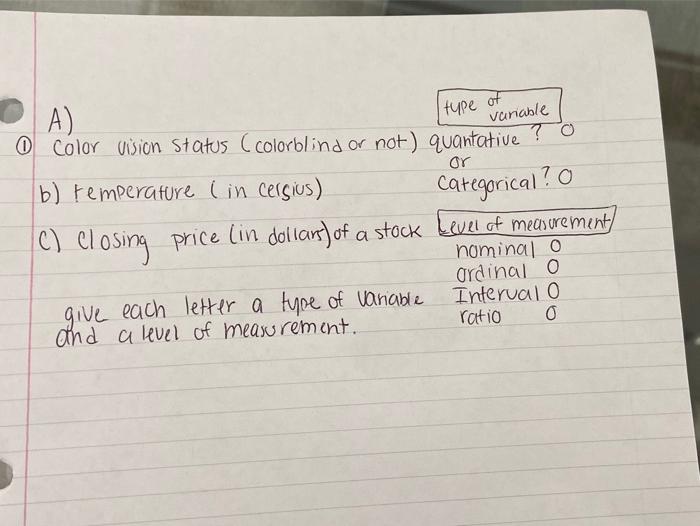 A)
type of variable
① Color vision status (colorblind or not) quantative ? O
or
b) temperature (in celsius) Categorical? O
C) Closing price (in dollars) of a stock Level of measurement
nominal O
ordinal O
give each letter a type of variable Interval O
and a level of measurement. ratio O